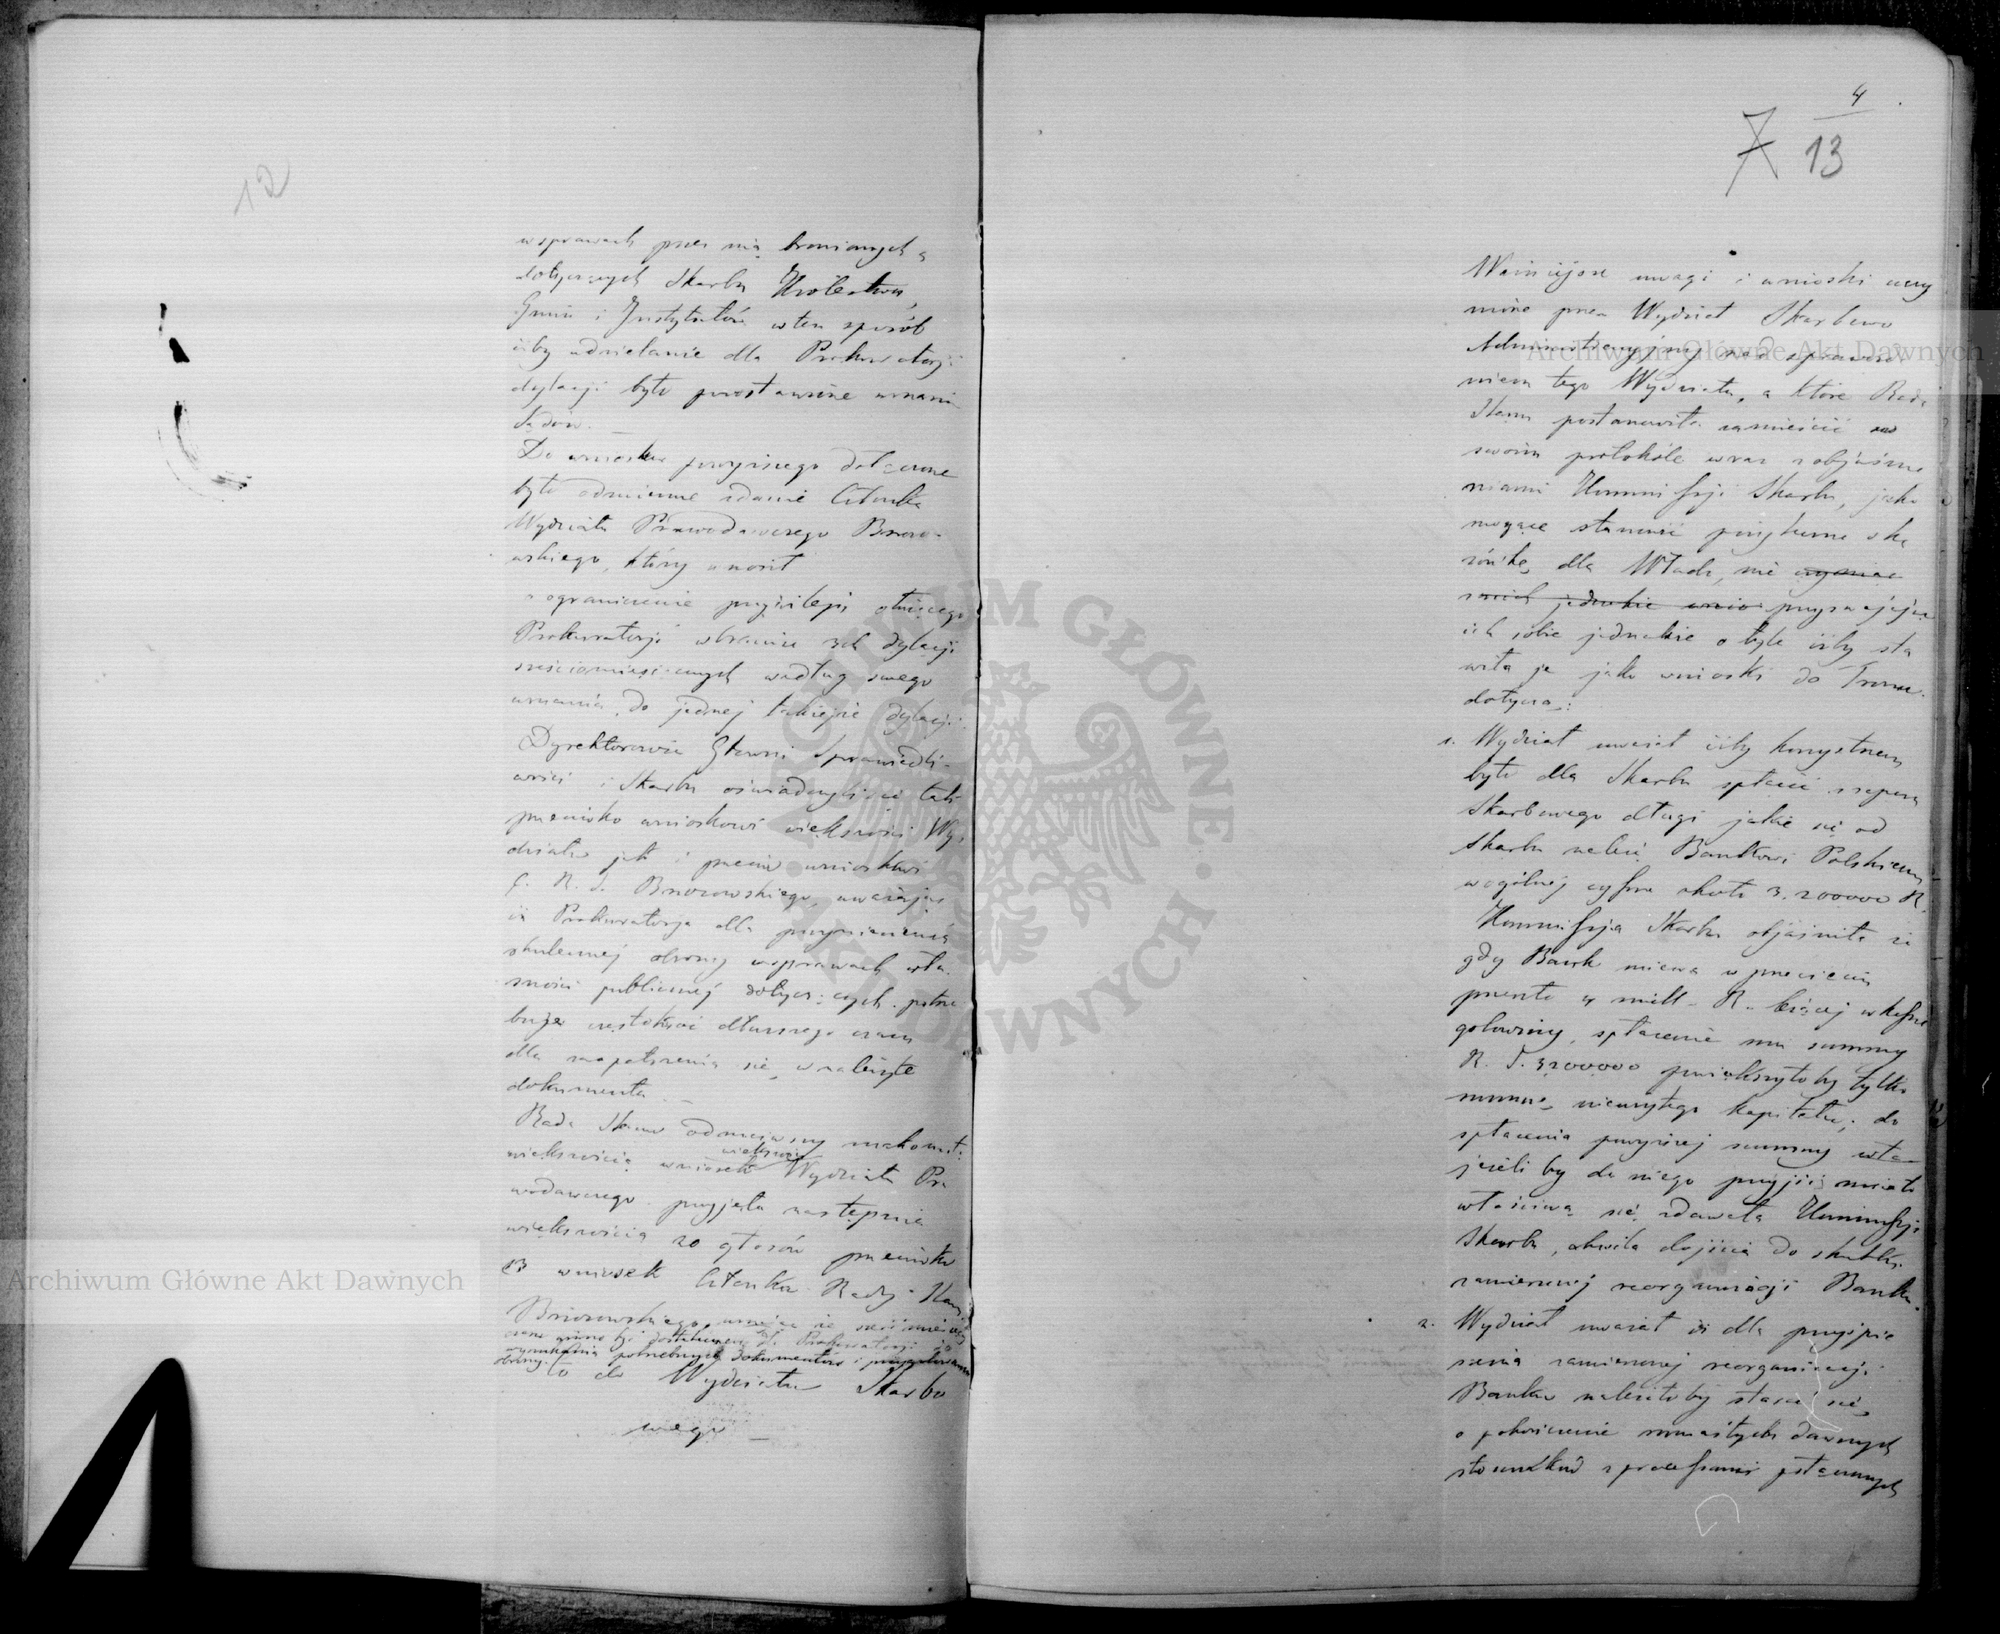 12
w sprawach przez nią bronionych a
dotyczących Skarbu Królestwa,
Gmin i Instytutów w ten sposób
iżby udzielanie dla Prokuratorji
dylacji było pozostawione uznaniu
Sądów. —
Do wniosku powyższego dołączone
było odmienne zdanie Członka
Wydziału Prawodawczego Brzozo-
wskiego, który wnosił
o ograniczenie przywileju
Prokuratorji w braniu 3ch dylacji
sześciomiesięcznych według swego
uznania, do jednej takiejże dylacji.
Dyrektorowie Główni Sprawiedli-
wości i Skarbu oświadczyli się tak
przeciwko wnioskowi większości Wy-
działu jak i przeciw wnioskowi
C. R. S. Brzozowskiego, uważając
iż Prokuratorja dla przyniesienia
skutecznej obrony w sprawach wła-
sności publicznej dotyczących potrze
buje częstokroć dłuższego czasu
dla zaopatrzenia się w należyte
dokumenta. —
Rada Stanu odrzuciwszy znakomitą
większością wniosek większości Wydziału Pra
wodawczego przyjęła następnie
większością 20 głosów przeciwko
13 wniosek Członka Rady Stanu
Brzozowskiego, uznając że sześć miesięcy
czasu winno być dostateczne dla Prokuratorji do
wyszukania potrzebnych dokumentów i przygotowania
obrony. Co do Wydziału Skarbo
wego —
4
7 13
Ważniejsze uwagi i wnioski uczy
nione przez Wydział Skarbowo
Administracyjny nad sprawozda
niem tego Wydziału, a które Rada
Stanu postanowiła zamieścić w
swoim protokóle wraz z objaśnie
niami Kommissji Skarbu, jako
mogące stanowić pożyteczną ska
zówkę dla Władz, nie
jednakże przyswajając
ich sobie jednakże o tyle iżby sta
wiła je jako wnioski do Tronu.
dotyczą:
1. Wydział uważał iżby korzystnem
było dla Skarbu spłacić z zapasu
Skarbowego długi jakie się od
Skarbu należą Bankowi Polskiemu
w ogólnej cyfrze około 3,200000 R.
Kommissja Skarbu objaśniła iż
gdy Bank miewa w przecięciu
przeszło 4 mill. R. leżącej w kassie
gotowizny, spłacenie mu summy
R. S. 3200000 powiększyłoby tylko
summę nieużytego kapitału; do
spłacenia powyższej summy
jeżeli by do niego przyjść miało
właściwą się zdawała Kommissji
Skarbu, chwila dojścia do skutku
zamierzonej reorganizacji Banku.
2. Wydział uważał iż dla przyśpie
szenia zamierzonej reorganizacji
Banku należałoby starać się
o pokończenie rozmaitych dawnych
stosunków z processami połączonych
Archiwum Główne Akt Dawnych
Archiwum Główne Akt Dawnych
ARCHIWUM GŁÓWNE AKT DAWNYCH